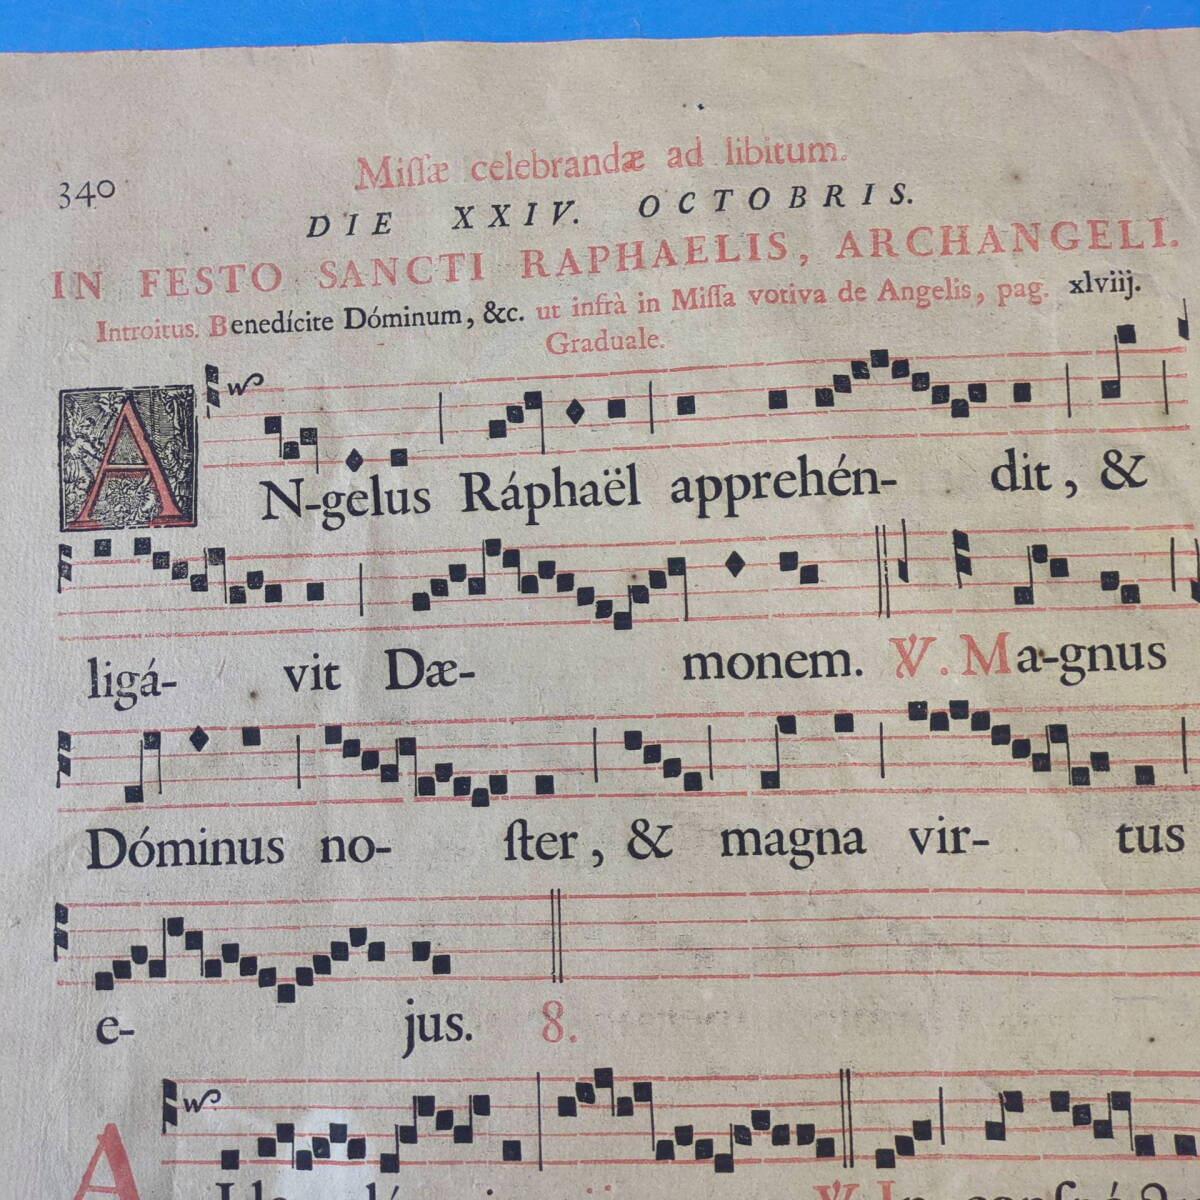 340
Miſſæ celebrandæ ad libitum.
DIE XXIV. OCTOBRIS.
IN FESTO SANCTI RAPHAELIS, ARCHANGELI.
Introitus. Benedícite Dóminum, &c. ut infrà in Miſſa votiva de Angelis, pag. xlviij.
Graduale.
AN-gelus Ráphaël apprehén- dit, &
ligá- vit Dæ- monem. ℣. Ma-gnus
Dóminus no- ſter, & magna vir- tus
e- jus. 8.
A